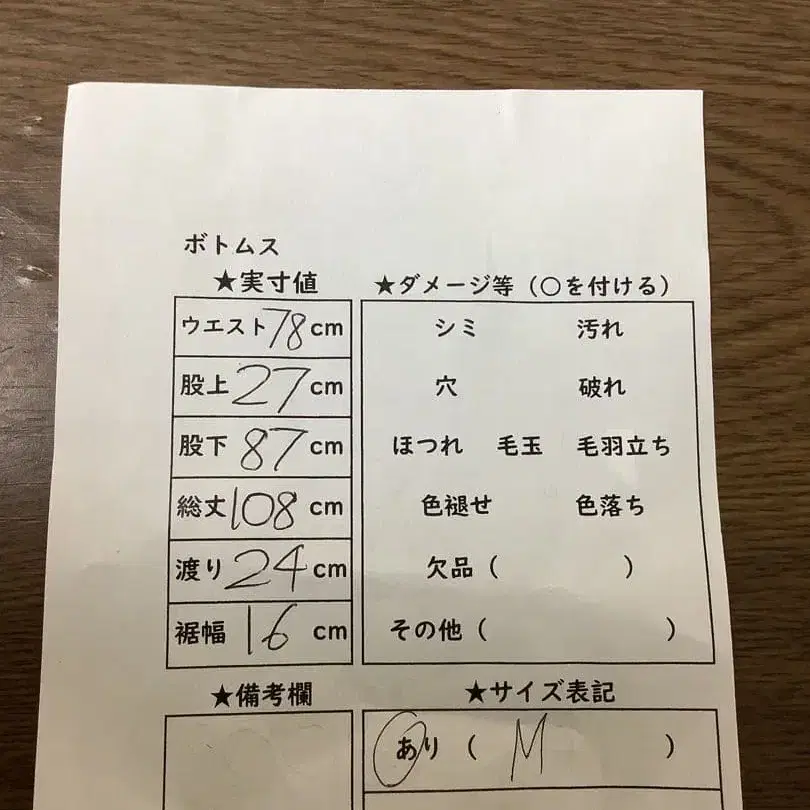 ボトムス
★実寸値
ウエスト 78 cm
股上 27 cm
股下 87 cm
総丈 108 cm
渡り 24 cm
裾幅 16 cm
★ダメージ等（○を付ける）
シミ 汚れ
穴 破れ
ほつれ 毛玉 毛羽立ち
色褪せ 色落ち
欠品（ ）
その他（ ）
★備考欄
★サイズ表記
あり（ M ）